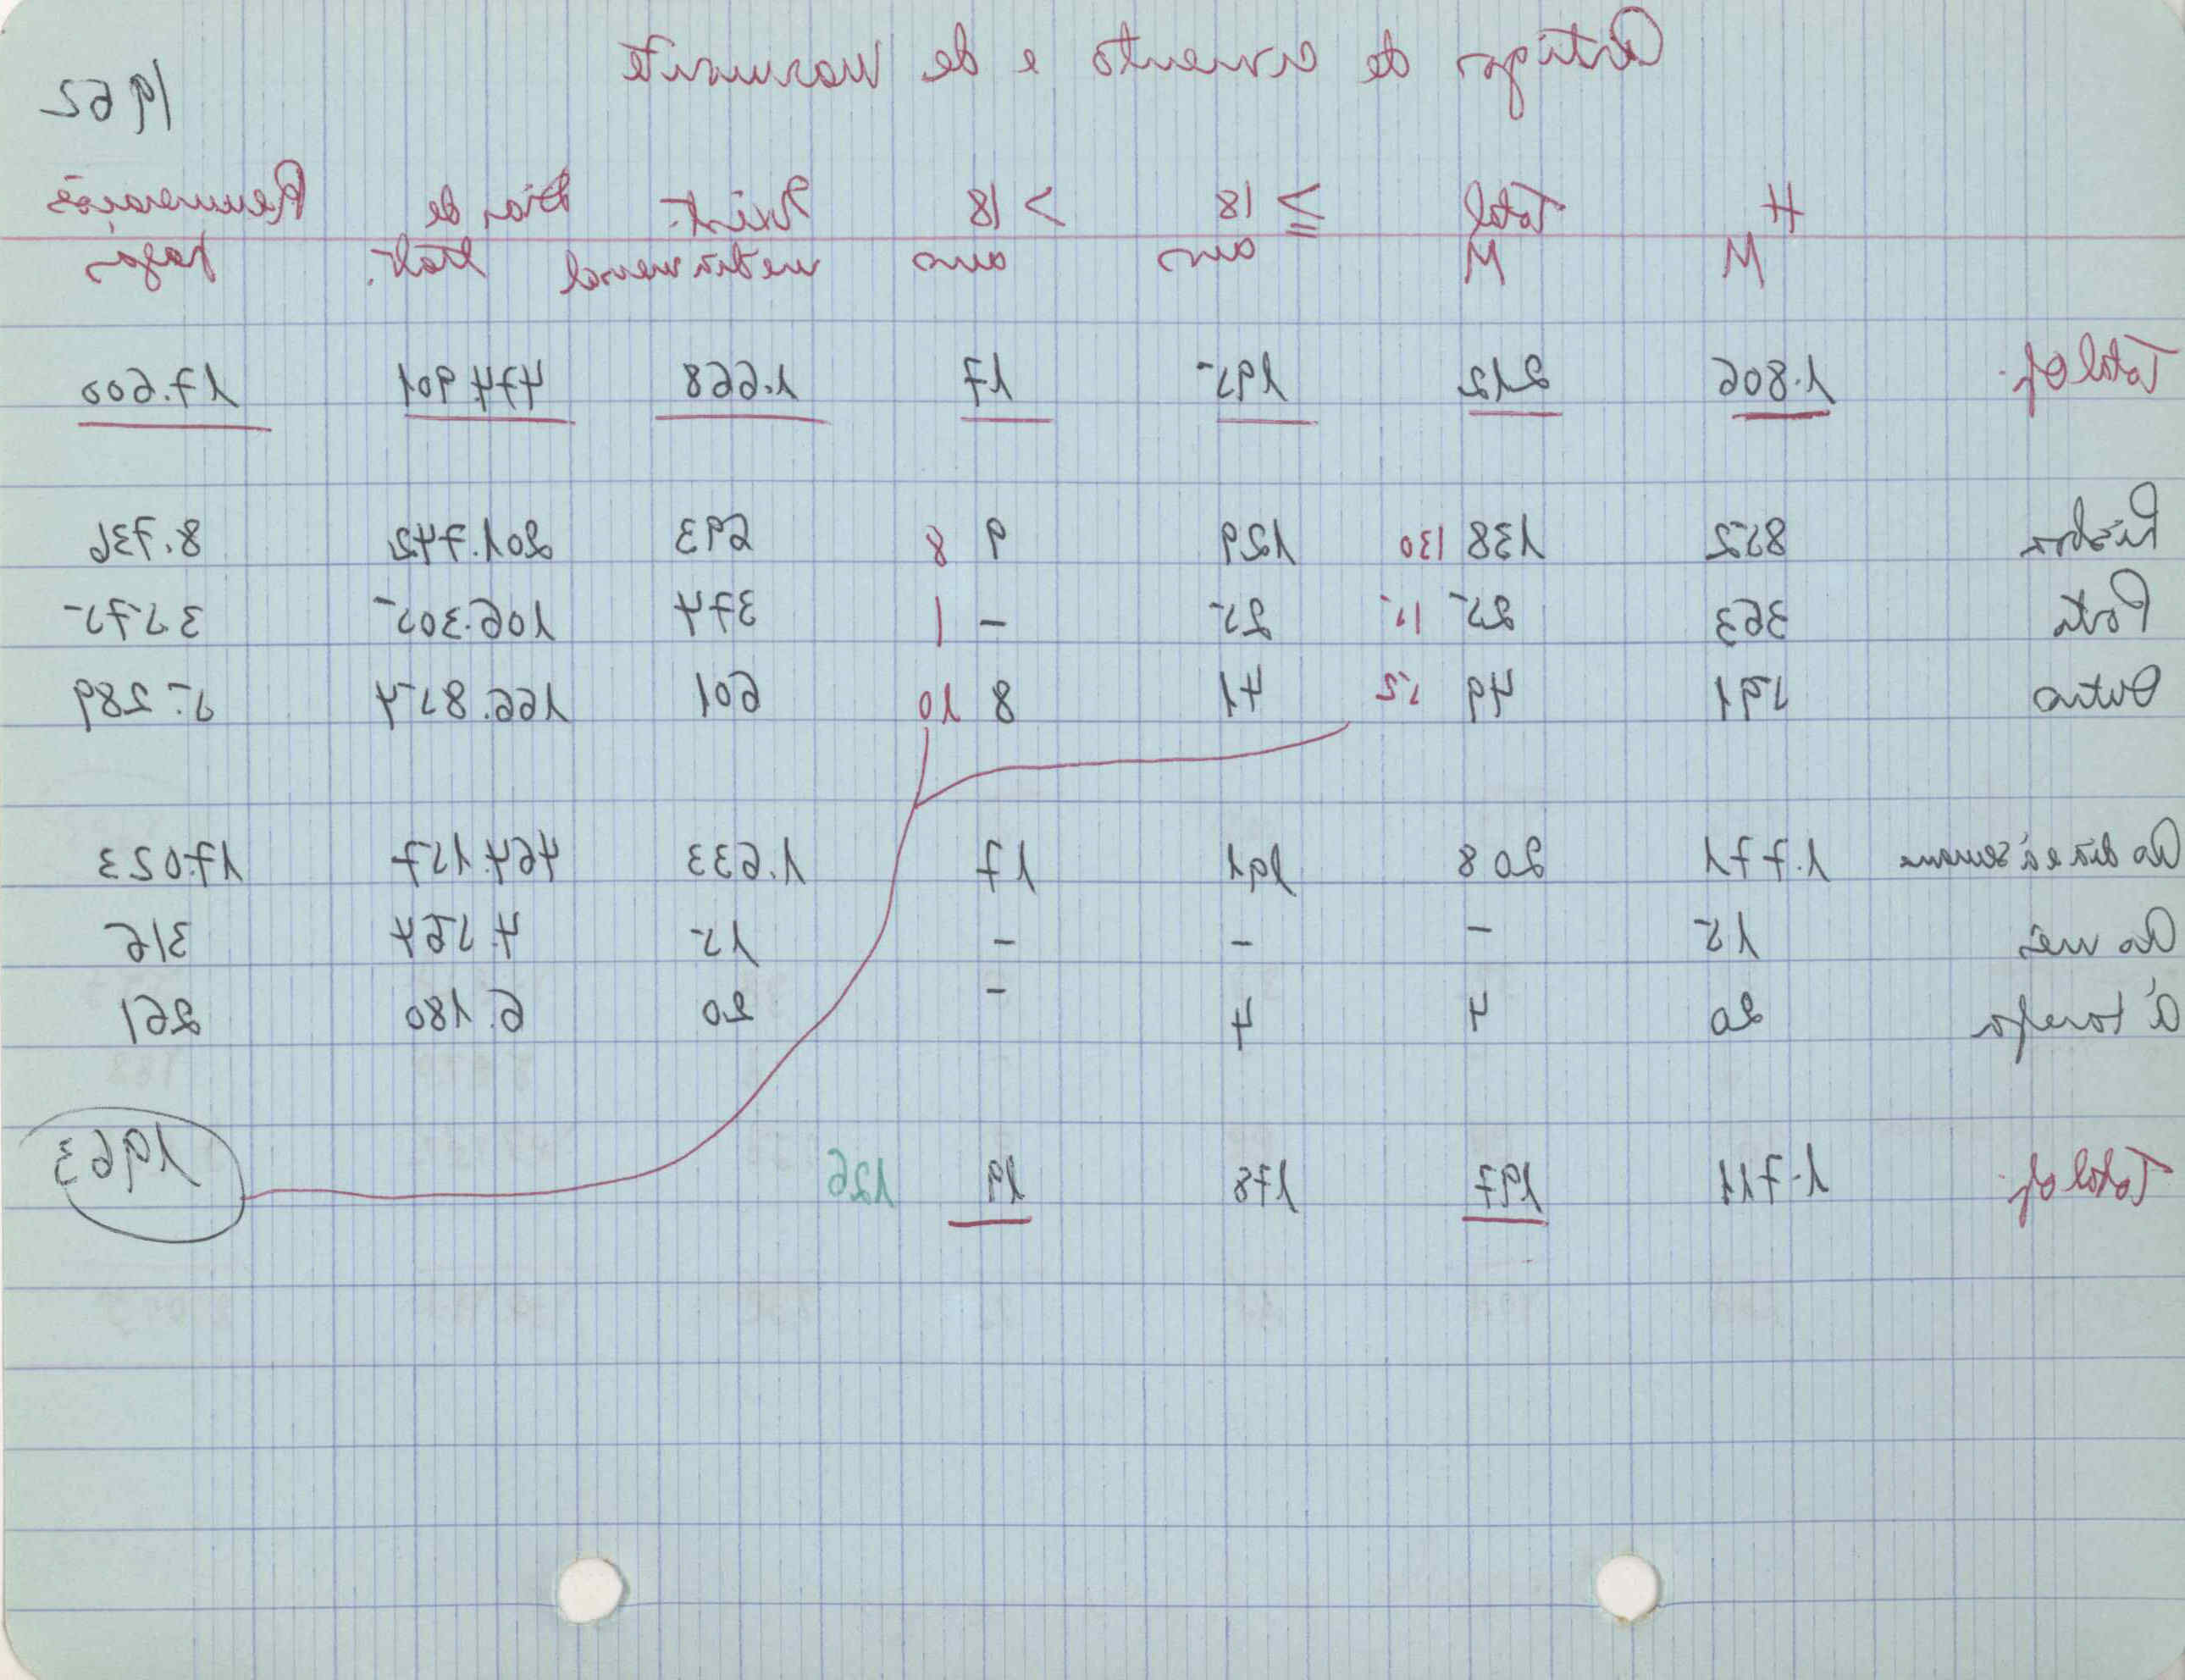 Artigos de cimento e de marmorite
1962
H Total ≤ 18 > 18 Exist. Dias de Remunerações
M M anos anos média mensal trab. pagas
Total of. 1.806 212 195 17 1.668 474 901 17.600
Lisboa 852 138 130 129 9 8 693 201.742 8.736
Porto 363 25 15 25 - 1 374 106.305 3.575
Outros 591 49 52 41 8 10 601 166.854 5.289
Ao dia e à semana 1.771 208 191 17 1.633 464.157 17.023
Ao mês 15 - - - 15 4.564 316
À tarefa 20 4 4 - 20 6.180 261
Total of. 1.711 197 178 19 126 1963